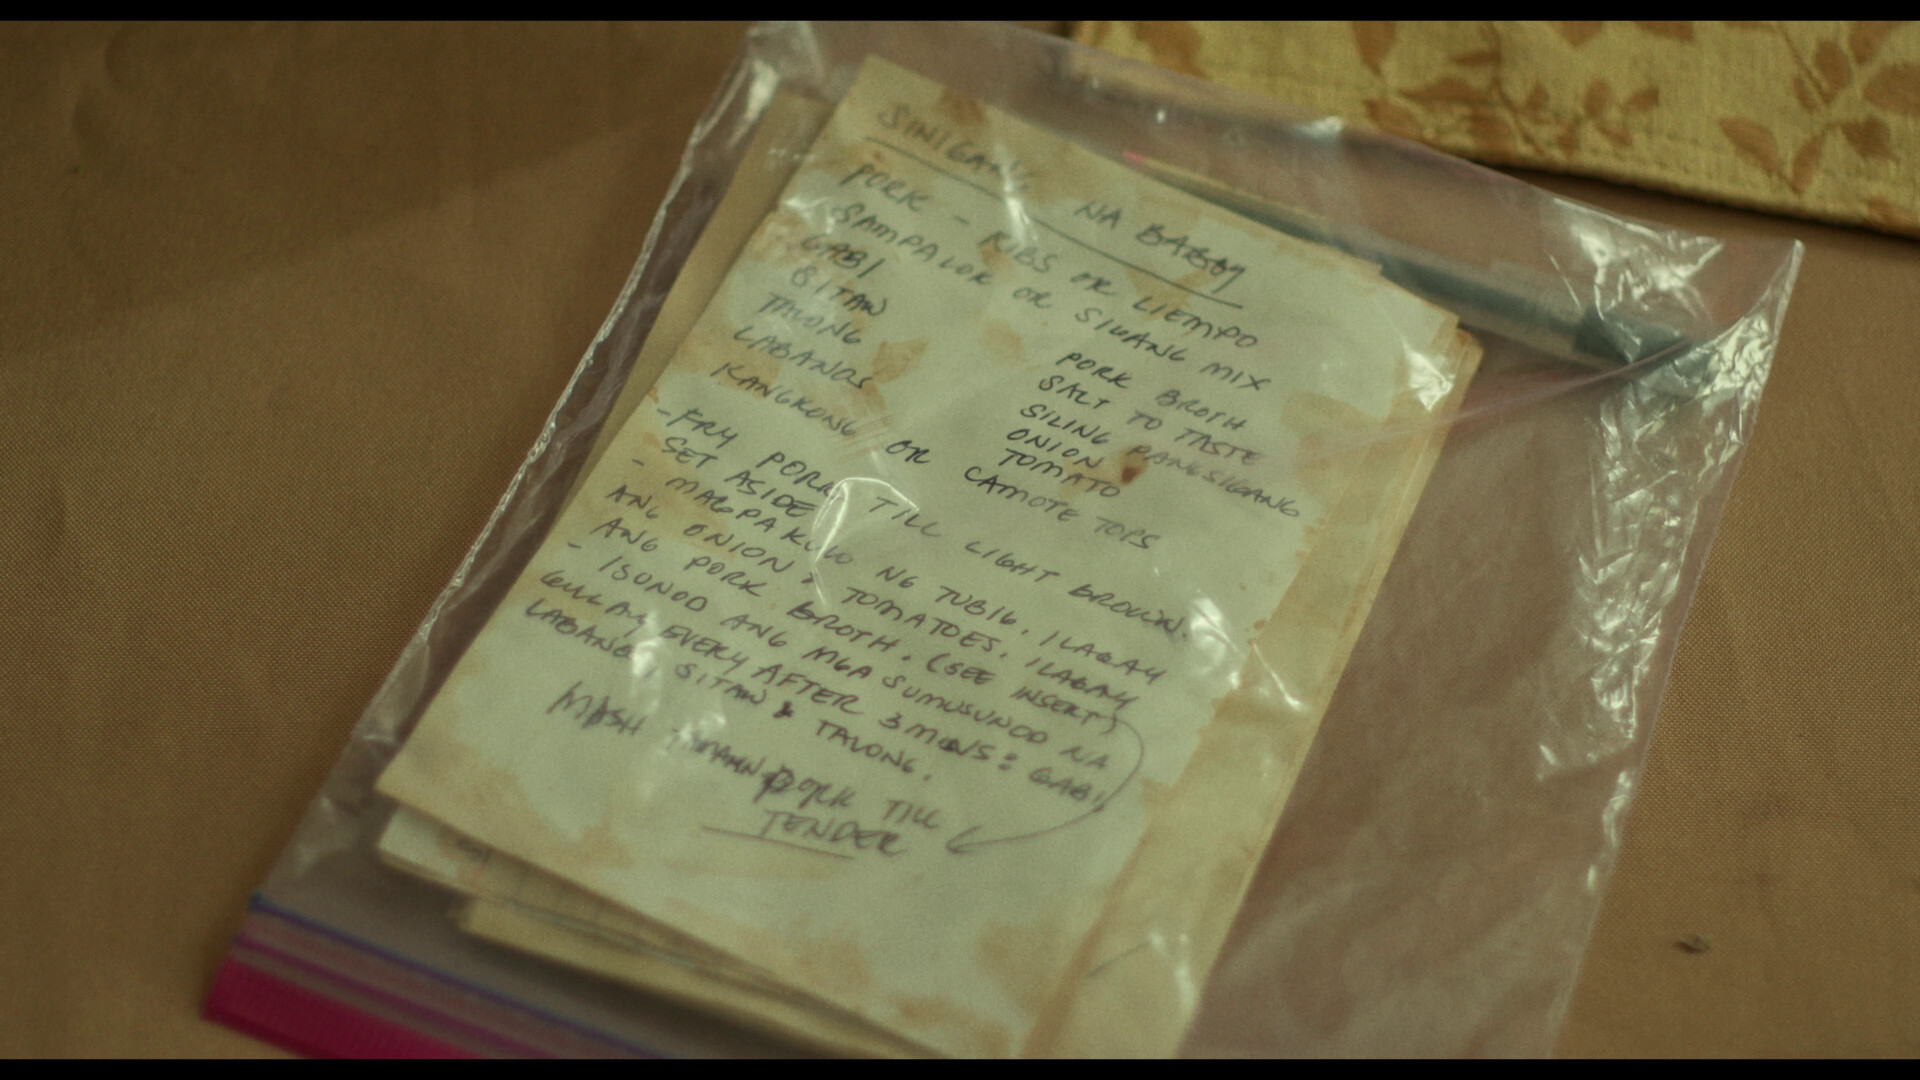 SINIGANG NA BABOY
PORK - RIBS OR LIEMPO
SAMPALOK OR SIGANG MIX
GABI
SITAW
TALONG
LABANOS
KANGKONG OR CAMOTE TOPS
PORK BROTH
SALT TO TASTE
SILING PANGSIGANG
ONION
TOMATO
- FRY PORK TILL LIGHT BROWN.
SET ASIDE
- MAGPAKULO NG TUBIG. ILAGAY
ANG ONION & TOMATOES. ILAGAY
ANG PORK BROTH. (SEE INSERT)
- ISUNOD ANG MGA SUMUSUNOD NA
GULAY EVERY AFTER 3 MINS: GABI,
LABANOS SITAW & TALONG.
MASH PORK TILL
TENDER